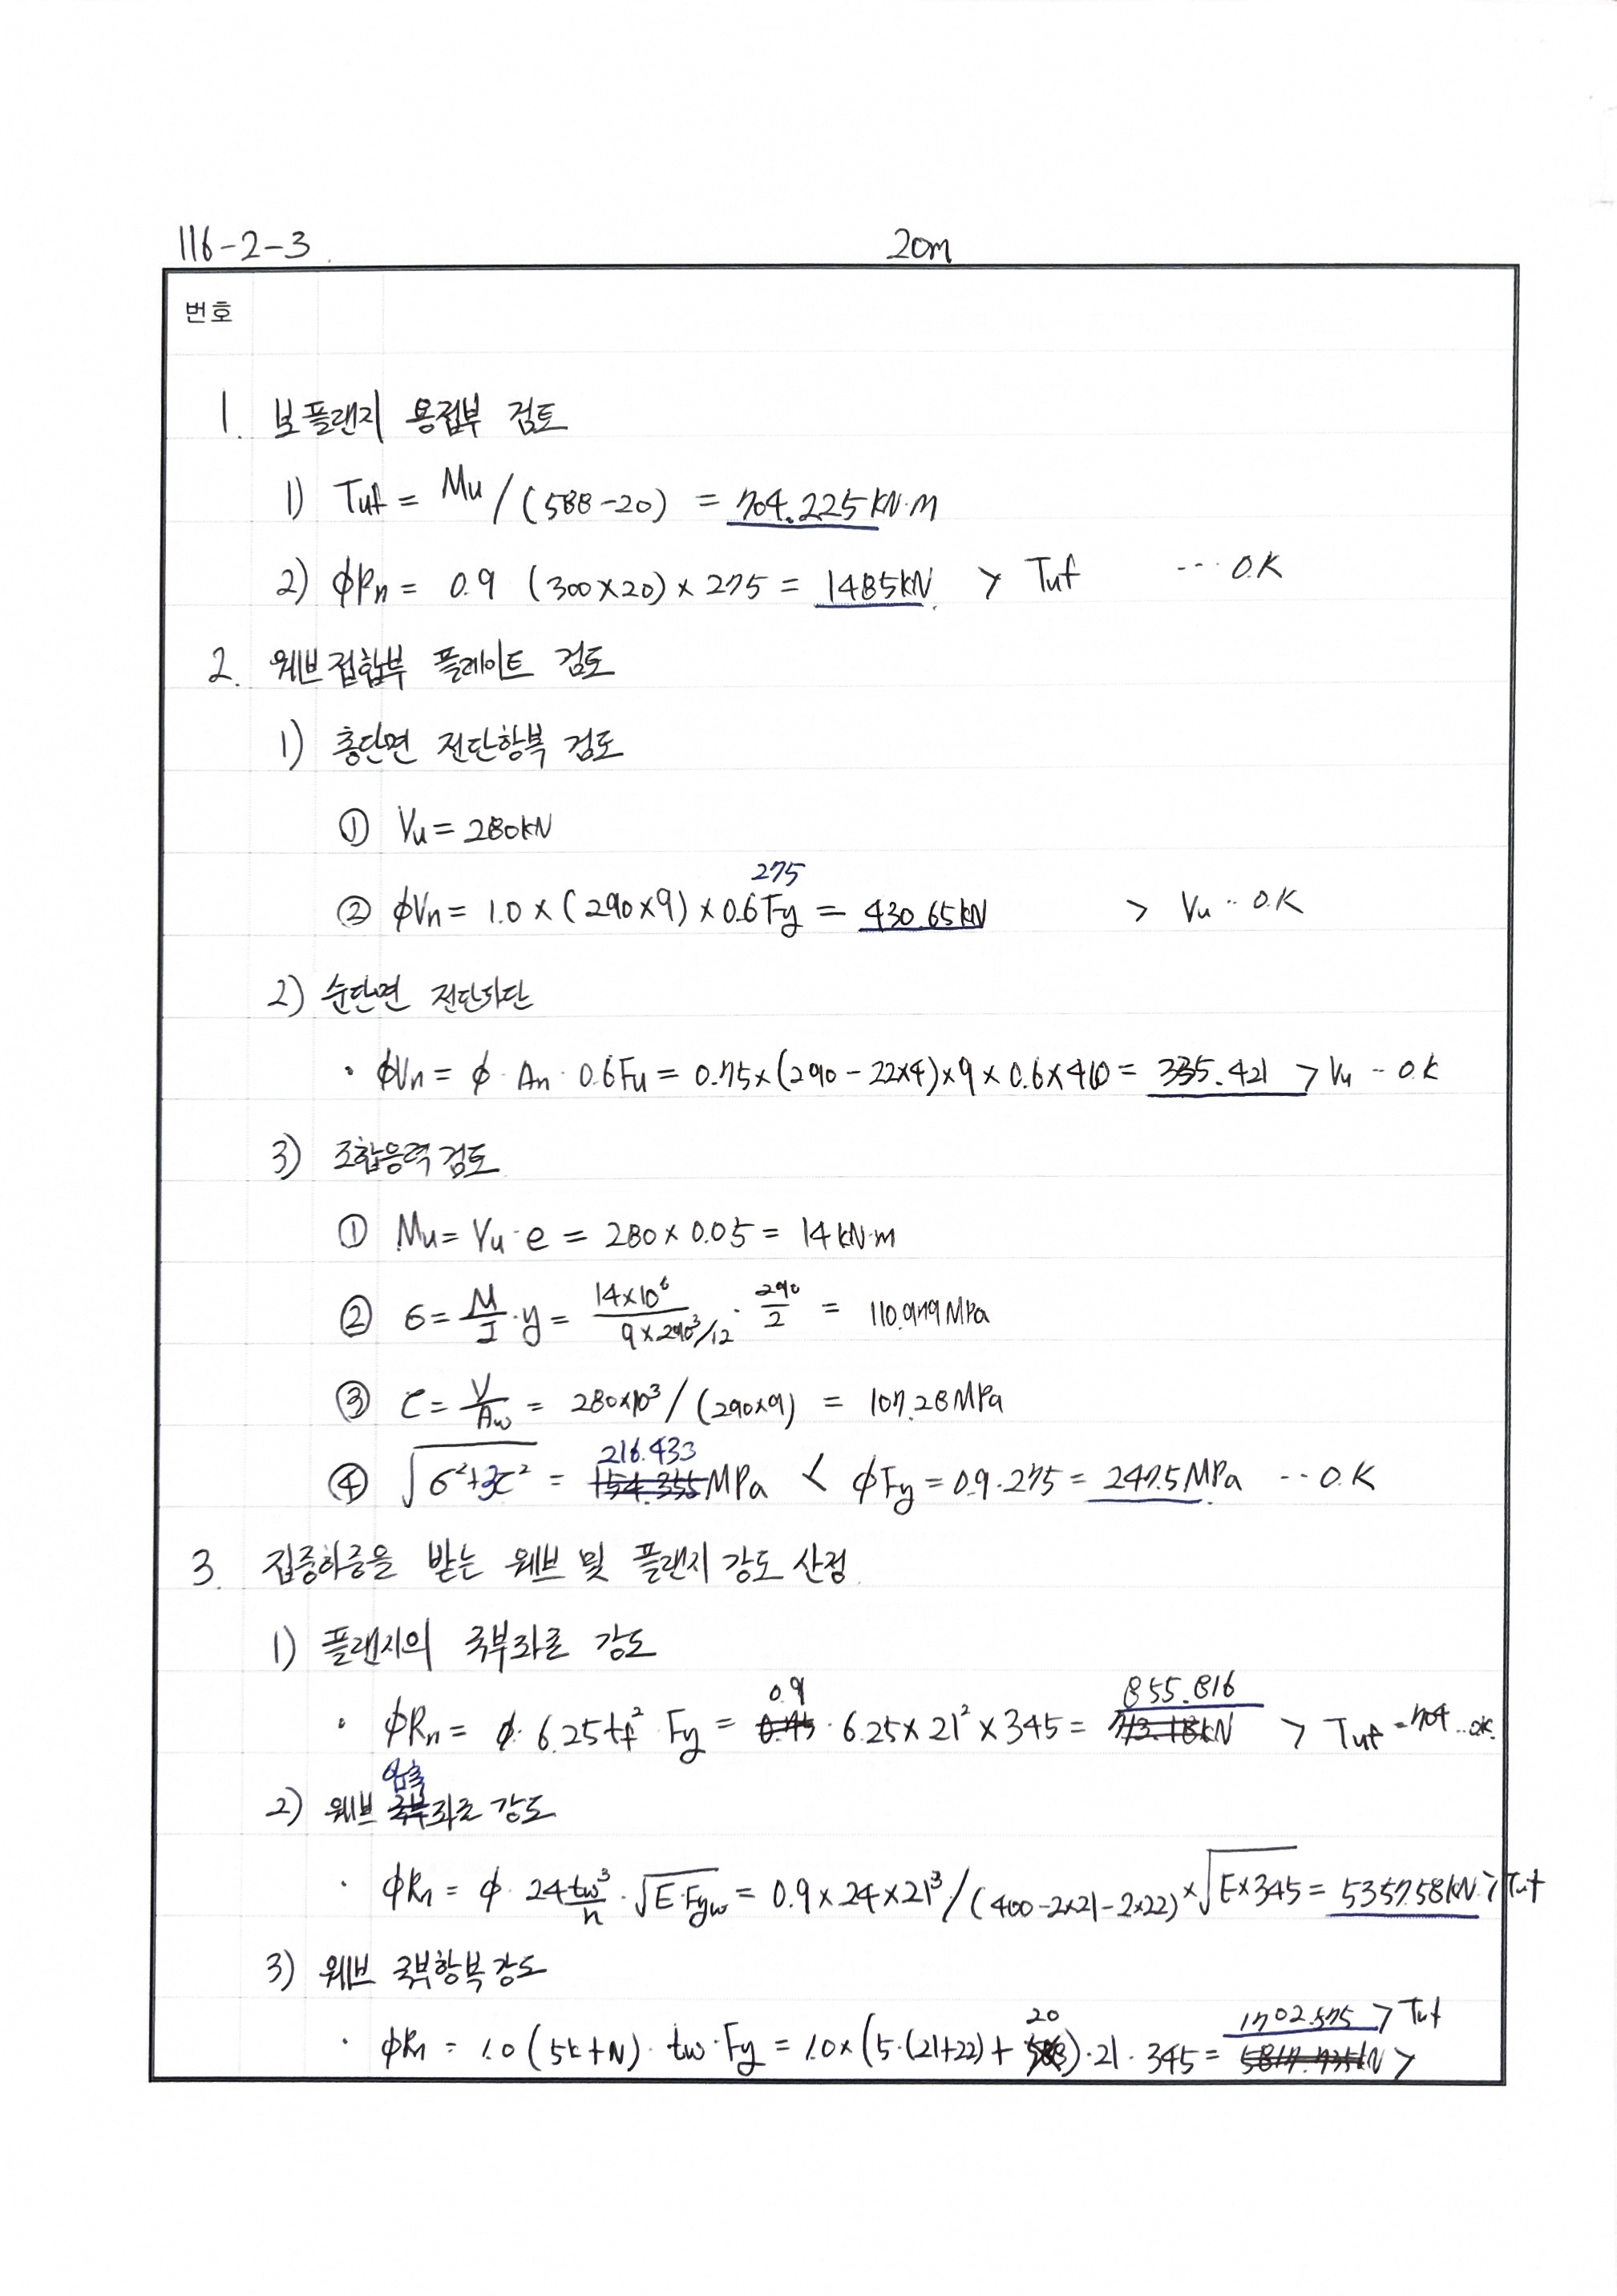 116-2-3. 20m
번호
1. 보플랜지 용접부 검토
1) Tuf = Mu / (588-20) = 704.225 kN·m
2) ϕRn = 0.9 (300×20) × 275 = 1485kN > Tuf ··· O.K
2. 웨브접합부 플레이트 검토
1) 총단면 전단항복 검토
① Vu = 280kN
275
② ϕVn = 1.0 × (290×9) × 0.6Fy = 430.65kN > Vu ·· O.K
2) 순단면 전단파단
· ϕVn = ϕ · An · 0.6Fu = 0.75×(290-22×4)×9×0.6×410 = 335.421 > Vu ·· O.K
3) 조합응력검토
① Mu = Vu·e = 280×0.05 = 14kN·m
② σ = M/I · y = 14×10⁶ / 9×290³/12 · 290/2 = 110.979MPa
③ τ = V/Aw = 280×10³/(290×9) = 107.28MPa
216.433
④ √σ²+3τ² = 154.355 MPa < ϕFy = 0.9·275 = 247.5MPa ·· O.K
3. 집중하중을 받는 웨브 및 플랜지 강도 산정
1) 플랜지의 국부좌굴 강도
0.9 855.816
· ϕRn = ϕ · 6.25tf² Fy = 0.75 · 6.25×21²×345 = 713.18kN > Tuf = 704 ·· ok.
압축
2) 웨브 국부좌굴 강도
· ϕRn = ϕ · 24tw³/h · √E·Fyw = 0.9×24×21³/(400-2×21-2×22) × √E×345 = 5357.58kN > Tuf
3) 웨브 국부항복강도
20 1702.575 > Tuf
· ϕRn = 1.0 (5k+N) · tw·Fy = 1.0×(5·(21+22)+588)·21·345 = 5817.735kN >